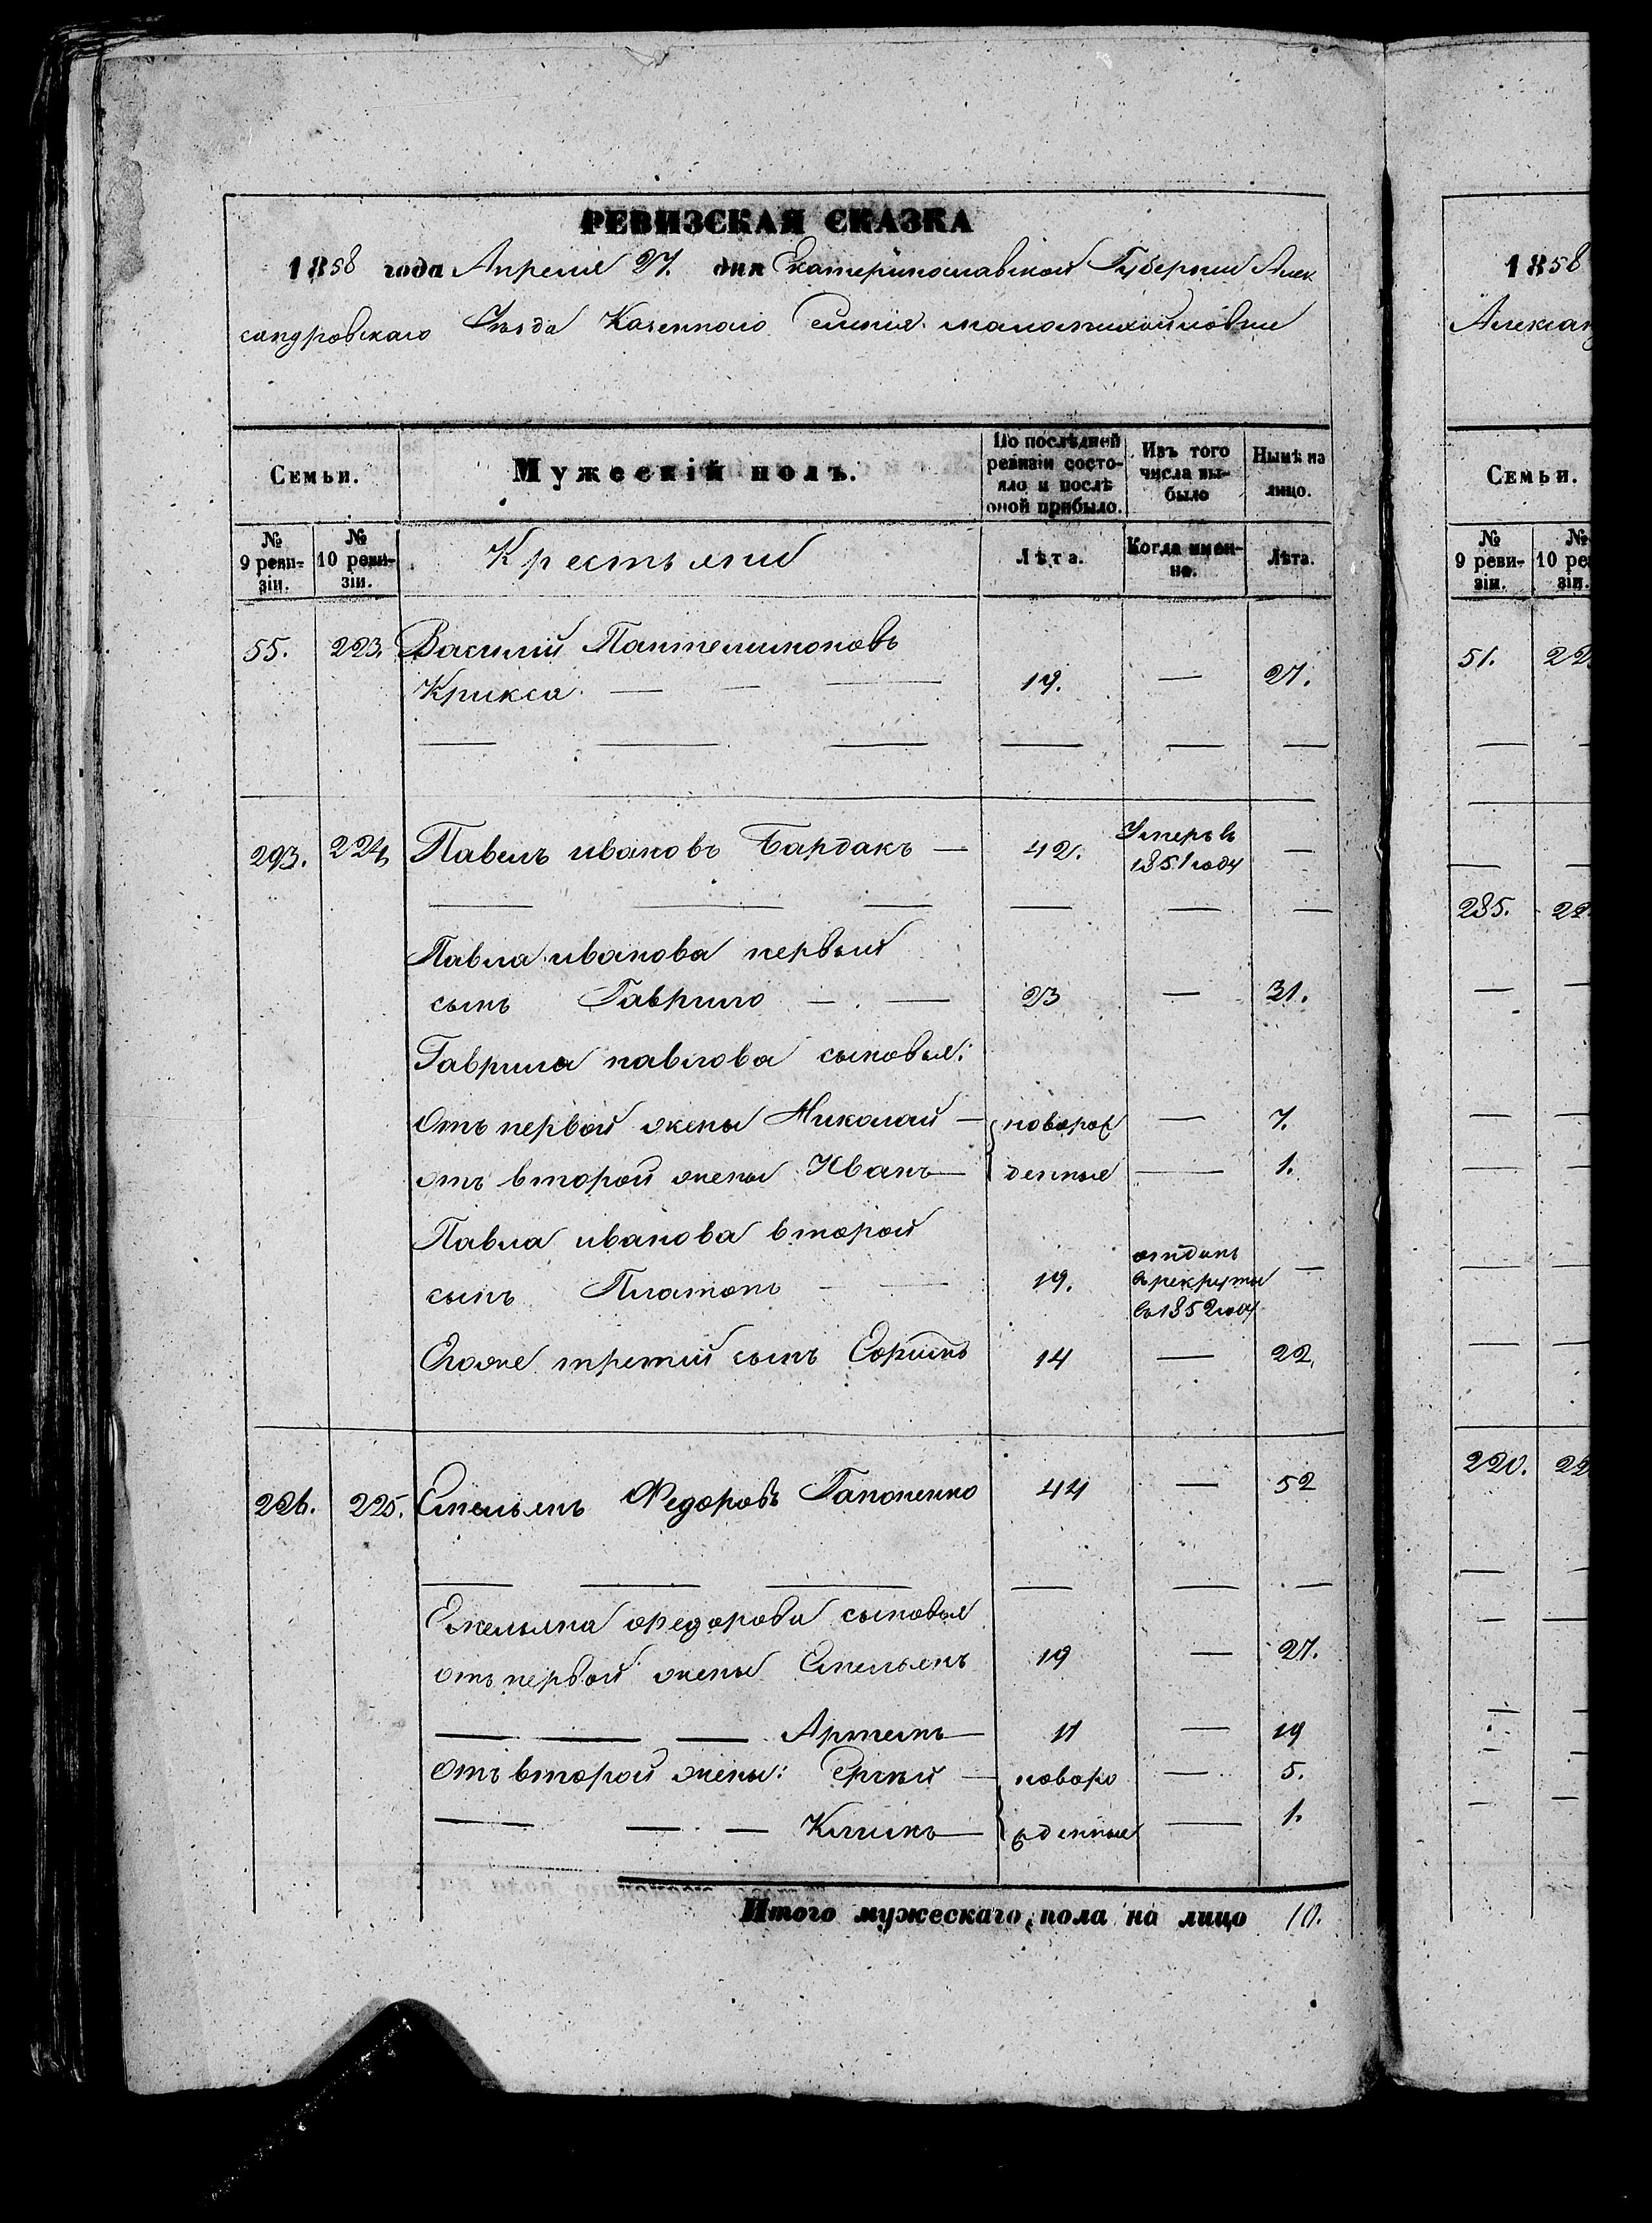 РЕВИЗСКАЯ СКАЗКА
1858 года Апреля 27. дня Екатеринославской Губернии Алек
сандровскаго Уѣзда Казеннаго Селенія маломихайловки
Семьи.
Мужескій полъ.
По послѣдней ревизіи состояло и послѣ оной прибыло.
Изъ того числа выбыло
Нынѣ на лицо.
№ 9 ревизіи.
№ 10 ревизіи.
Крестьяне
Лѣта.
Когда именно.
Лѣта.
55. 223. Василій Пантелимоновъ
Крикса — — — 19. — 27.
293. 224. Павелъ ивановъ Бардакъ — 42. Умеръ въ 1851 году —
Павла иванова первый
сынъ Гаврило — — 23 — 31.
Гаврила павлова сыновья:
Отъ первой жены Николай — новорож — 7.
отъ второй жены Иванъ — денные — 1.
Павла иванова второй
сынъ Платонъ — — 19. отданъ в рекруты въ 1852 году —
Егоже третий сынъ 14 — 22.
226. 225. Емельянъ Федоровъ Гапоненко 44 — 52
Емельяна Федорова сыновья
отъ первой жены Емельянъ 19 — 27.
— — — Артемъ — 11 — 19
Отъ второй жены: Сергѣй — новоро — 5.
— — — Климъ — жденные — 1.
Итого мужескаго пола на лицо 10.
1858
Александ
Семьи.
№ 9 ревизіи.
№ 10 ре
зіи.
51. 22
285. 22
220. 22